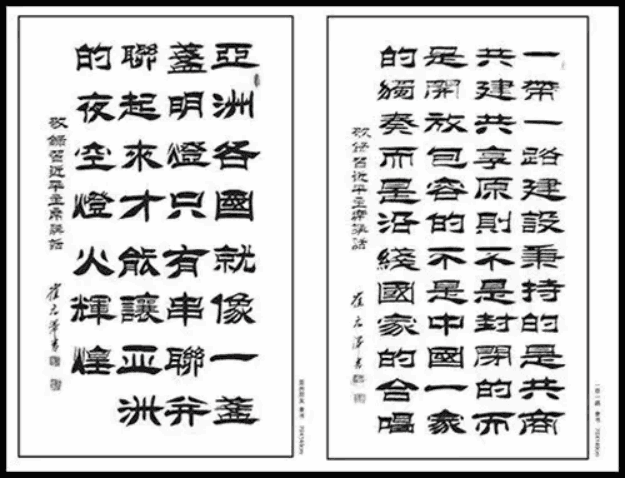 一帶一路建設秉持的是共商
共建共享原則不是封閉的而
是開放包容的不是中國一家
的獨奏而是沿綫國家的合唱
敬錄習近平主席講話
亞洲各國就像一盞
盞明燈只有串聯并
聯起來才能讓亚洲
的夜空燈火輝煌
敬錄習近平主席講話